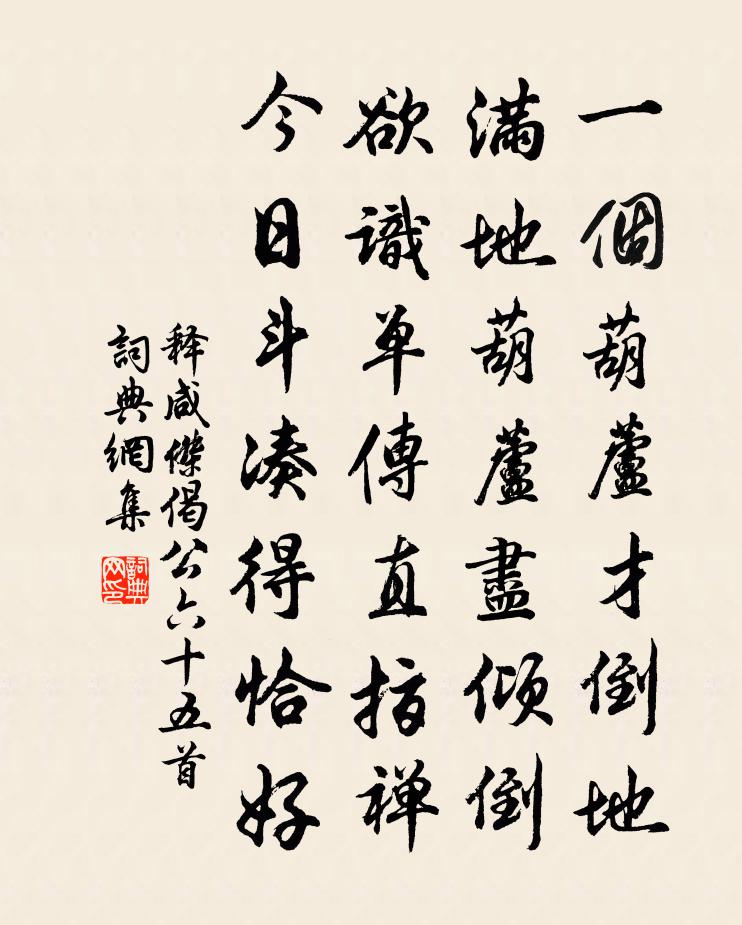 一個葫蘆才倒地
滿地葫蘆盡傾倒
欲識单傳直指禅
今日斗凑得恰好
释咸傑偈公六十五首
詞典網集
詞典网印